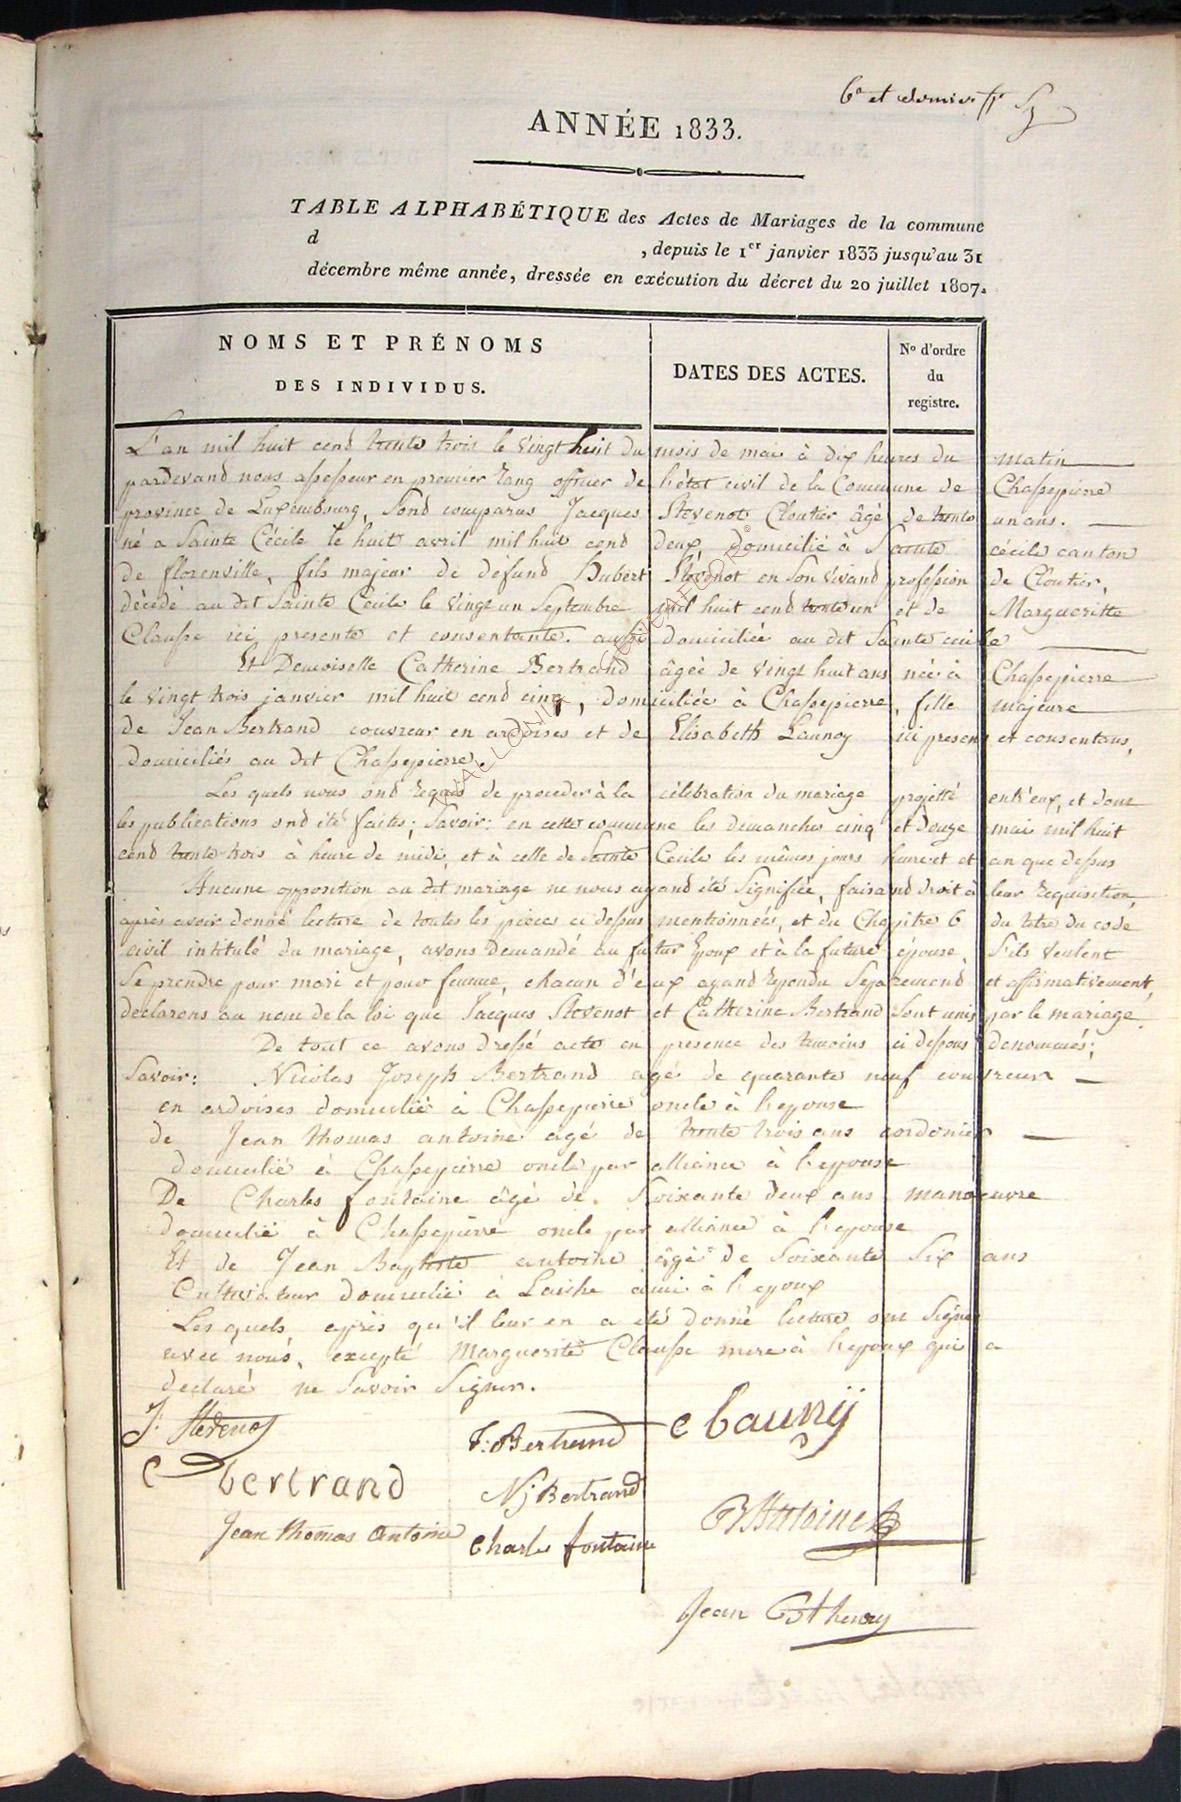 6e et dernier
ANNÉE 1833.
TABLE ALPHABÉTIQUE des Actes de Mariages de la commune
d , depuis le 1er janvier 1833 jusqu'au 31
décembre même année, dressée en exécution du décret du 20 juillet 1807.
NOMS ET PRÉNOMS
DES INDIVIDUS.
DATES DES ACTES.
No d'ordre
du
registre.
L'an mil huit cend trente trois le vingt huit du mois de mai à dix heures du matin
pardevand nous assesseur en premier rang officier de l'état civil de la Commune de Chassepierre
province de Luxembourg, Sond comparus Jacques Stevenot Cloutier âgé de trente un ans.
né a Sainte Cécile le huit avril mil huit cend deux, domicilié à Sainte cécile canton
de florenville, fils majeur de defund Hubert Stevenot en son vivand profession de Cloutier,
décédé au dit Sainte Cécile le vingt un Septembre mil huit cend trente un et de Margueritte
Clausse ici presente et consentante. aussi domiciliée au dit Sainte cecile
Et Demoiselle Catherine Bertrand âgée de vingt huit ans née à Chassepierre
le vingt trois janvier mil huit cend cinq, domiciliée à Chassepierre, fille majeure
de Jean Bertrand couvreur en ardoises et de Elisabeth Launoy ici presens et consentans,
domiciliés au dit Chassepierre.
Les quels nous ond requis de proceder à la célébration du mariage projetté entr'eux, et dont
les publications ond été faites; Savoir: en cette commune les demanches cinq et douze mai mil huit
cend trente trois à heure de midi, et à celle de Sainte Cecile les mêmes jours heure et et an que dessus
Aucune opposition au dit mariage ne nous ayand été Signifiée, faisand droit à leur requisition,
après avoir donné lecture de toutes les pieces ci dessus mentionnées, et du Chapitre 6 du titre du code
civil intitulé du mariage, avons demandé au futur Epoux et à la future épouse, S'ils veulent
Se prendre pour mari et pour femme, chacun d'eux ayand repondu Separemend et affirmativement,
declarons au nom de la loi que Jacques Stevenot et Catherine Bertrand Sont unis par le mariage.
De tout ce avons dressé acte en presence des temoins ci dessous denommés;
Savoir: Nicolas Joseph Bertrand agé de quarante neuf couvreur
en ardoises domicilié à Chassepierre oncle à l'epouse
de Jean thomas antoine agé de trente trois ans cordonier
domicilié à Chassepierre oncle par alliance à l'epouse
De Charles fontaine âgé de Soixante deux ans manoeuvre
domicilié à Chassepierre oncle par alliance à l'epouse
Et de Jean Baptiste antoine âgé de Soixante Six ans
Cultivateur domicilié à Laiche ami à l'epoux
Les quels, après qu'il leur en a été donné lecture ont Signé
avec nous, excepté Marguerite Clausse mere à l'epoux qui a
declaré ne Savoir Signer.
J: Stevenot
J: Bertrand
e launoij
C bertrand
Nj Bertrand
Bt Antoine
Jean thomas Antoine
Charles fontaine
Jean Bt henry
WALLONIA GENEAFED.BE